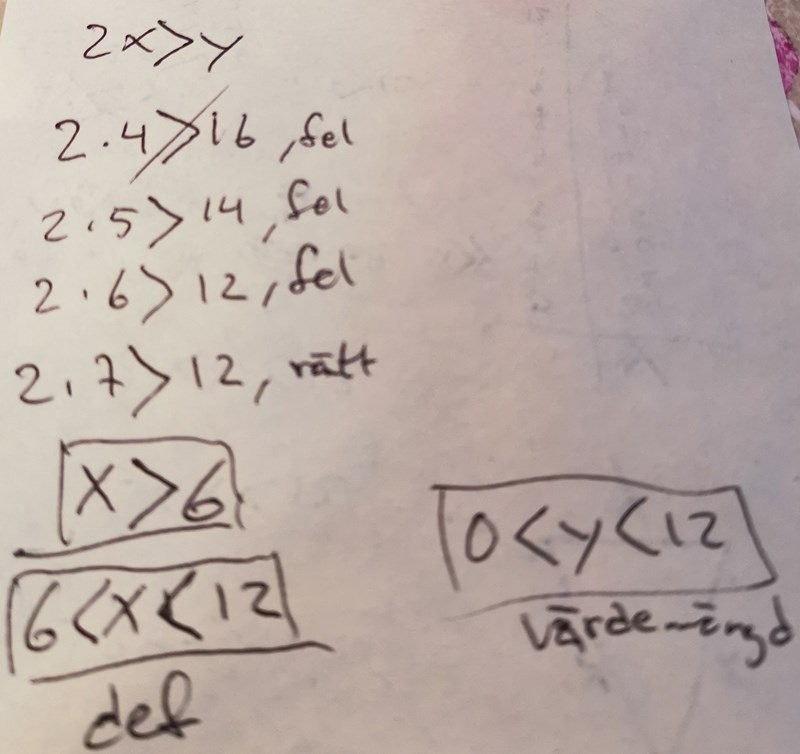 2x>y
2.4>16, fel
2.5>14, fel
2.6>12, fel
2.7>12, rätt
x>6
6<x<12
def
0<y<12
värdemängd